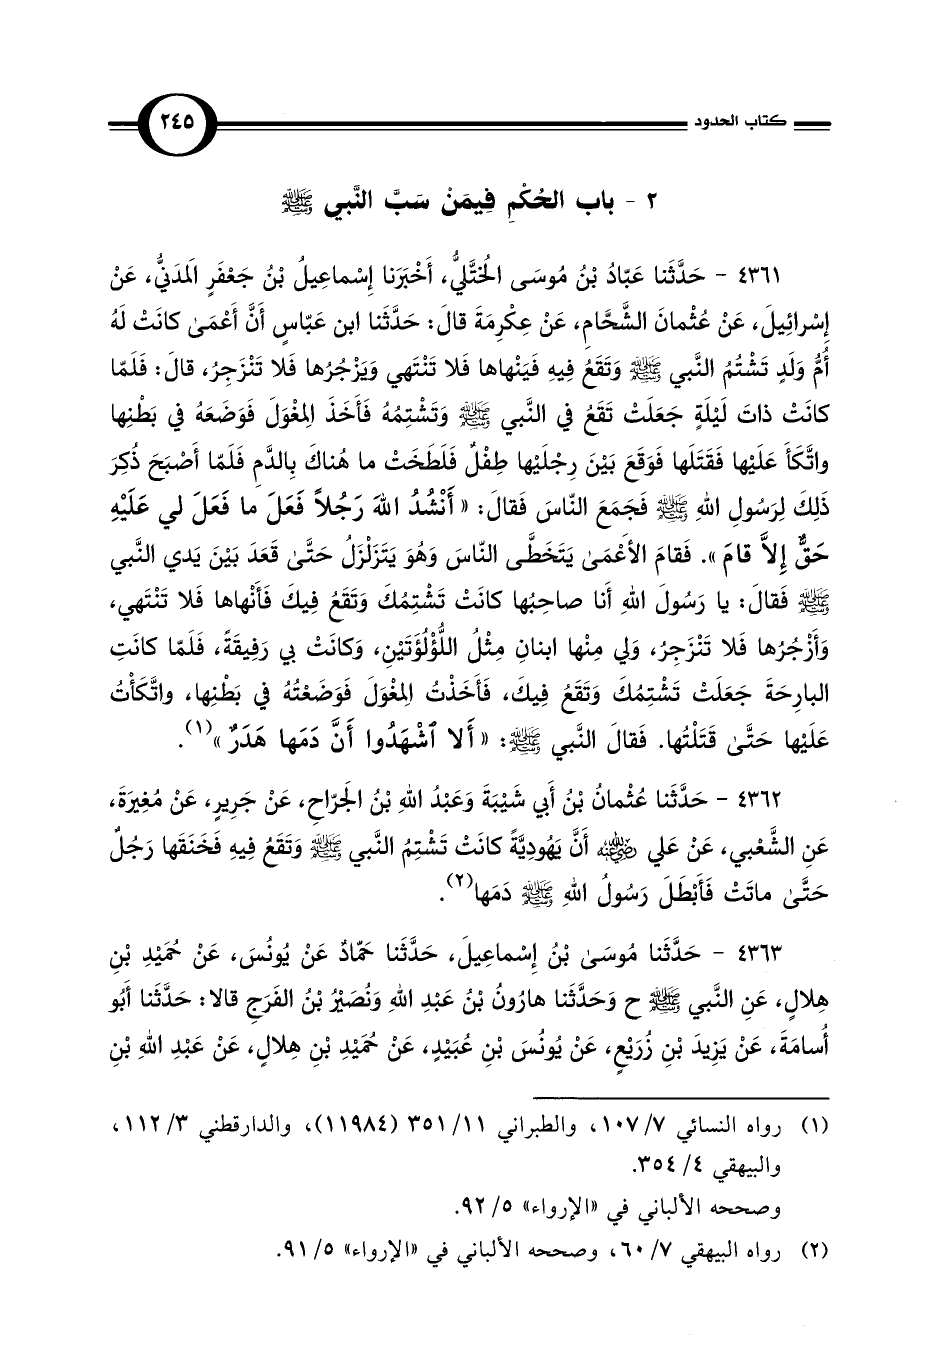 كتاب الحدود ٢٤٥
٢ - باب الحُكْمِ فِيمَنْ سَبَّ النَّبي ﷺ
٤٣٦١ - حَدَّثَنا عَبّادُ بْنُ مُوسَى الخُتَّليُّ، أَخْبَرَنا إِسْماعِيلُ بْنُ جَعْفَرٍ المَدَنيُّ، عَنْ
إِسْرائِيلَ، عَنْ عُثْمانَ الشَّحّامِ، عَنْ عِكْرِمَةَ قالَ: حَدَّثَنا ابن عَبّاسٍ أَنَّ أَعْمَىٰ كانَتْ لَهُ
أُمُّ وَلَدٍ تَشْتُمُ النَّبي ﷺ وَتَقَعُ فِيهِ فَيَنْهاها فَلا تَنْتَهي وَيَزْجُرُها فَلا تَنْزَجِرُ، قالَ: فَلَمّا
كانَتْ ذاتَ لَيْلَةٍ جَعَلَتْ تَقَعُ في النَّبي ﷺ وَتَشْتِمُهُ فَأَخَذَ المِغْوَلَ فَوَضَعَهُ في بَطْنِها
واتَّكَأَ عَلَيْها فَقَتَلَها فَوَقَعَ بَيْنَ رِجْلَيْها طِفْلٌ فَلَطَخَتْ ما هُناكَ بِالدَّمِ فَلَمّا أَصْبَحَ ذُكِرَ
ذَلِكَ لِرَسُولِ اللهِ ﷺ فَجَمَعَ النّاسَ فَقالَ: « أَنْشُدُ اللهَ رَجُلاً فَعَلَ ما فَعَلَ لي عَلَيْهِ
حَقٌّ إِلاَّ قامَ ». فَقامَ الأَعْمَىٰ يَتَخَطَّى النّاسَ وَهُوَ يَتَزَلْزَلُ حَتَّىٰ قَعَدَ بَيْنَ يَدي النَّبي
ﷺ فَقالَ: يا رَسُولَ اللهِ أَنا صاحِبُها كانَتْ تَشْتِمُكَ وَتَقَعُ فِيكَ فَأَنْهاها فَلا تَنْتَهي،
وَأَزْجُرُها فَلا تَنْزَجِرُ، وَلي مِنْها ابنانِ مِثْلُ اللُّؤْلُؤَتَيْنِ، وَكانَتْ بي رَفِيقَةً، فَلَمّا كانَتِ
البارِحَةَ جَعَلَتْ تَشْتِمُكَ وَتَقَعُ فِيكَ، فَأَخَذْتُ المِغْوَلَ فَوَضَعْتُهُ في بَطْنِها، واتَّكَأْتُ
عَلَيْها حَتَّىٰ قَتَلْتُها. فَقالَ النَّبي ﷺ: « أَلا ٱشْهَدُوا أَنَّ دَمَها هَدَرٌ »(١).
٤٣٦٢ - حَدَّثَنا عُثْمانُ بْنُ أَبي شَيْبَةَ وَعَبْدُ اللهِ بْنُ الجَرّاحِ، عَنْ جَرِيرٍ، عَنْ مُغِيرَةَ،
عَنِ الشَّعْبي، عَنْ عَلي رضي الله عنه أَنَّ يَهُودِيَّةً كانَتْ تَشْتِمُ النَّبي ﷺ وَتَقَعُ فِيهِ فَخَنَقَها رَجُلٌ
حَتَّىٰ ماتَتْ فَأَبْطَلَ رَسُولُ اللهِ ﷺ دَمَها(٢).
٤٣٦٣ - حَدَّثَنا مُوسَىٰ بْنُ إِسْماعِيلَ، حَدَّثَنا حَمّادٌ عَنْ يُونُسَ، عَنْ حُمَيْدِ بْنِ
هِلالٍ، عَنِ النَّبي ﷺ ح وَحَدَّثَنا هارُونُ بْنُ عَبْدِ اللهِ وَنُصَيْرُ بْنُ الفَرَجِ قالا: حَدَّثَنا أَبُو
أُسامَةَ، عَنْ يَزِيدَ بْنِ زُرَيْعٍ، عَنْ يُونُسَ بْنِ عُبَيْدٍ، عَنْ حُمَيْدِ بْنِ هِلالٍ، عَنْ عَبْدِ اللهِ بْنِ
(١) رواه النسائي ٧/ ١٠٧، والطبراني ١١/ ٣٥١ (١١٩٨٤)، والدارقطني ٣/ ١١٢،
والبيهقي ٤/ ٣٥٤.
وصححه الألباني في «الإرواء» ٥/ ٩٢.
(٢) رواه البيهقي ٧/ ٦٠، وصححه الألباني في «الإرواء» ٥/ ٩١.